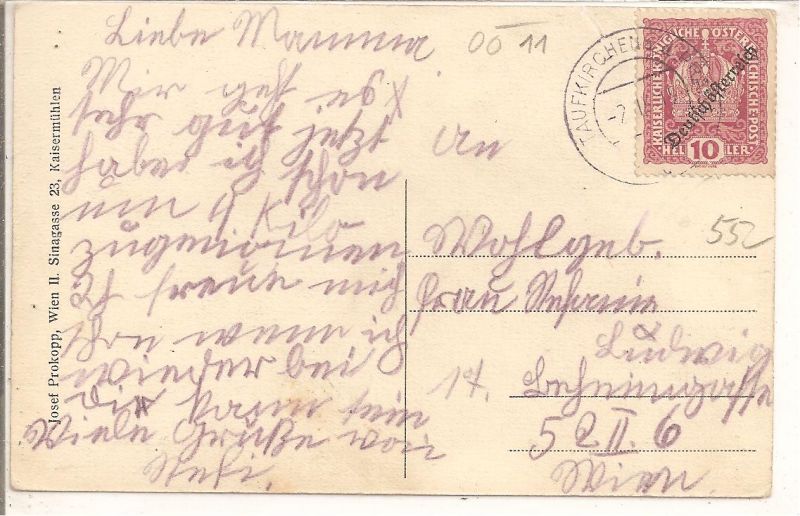 Liebe Mamma
Mir geht es
sehr gut jetzt
habe ich schon
um 4 Kilo
zugenommen
Ich freue mich
schon wenn ich
wieder bei
dir kann sein
Viele Grüße von
Stefi.
05 11
An
Wohlgeb.
Frau Stefanie
Ludwig
17. Beheimgasse
52 II. 6
Wien
552
Josef Prokopp, Wien II. Sinagasse 23, Kaisermühlen
TAUFKIRCHEN
KAISERLICHE KÖNIGLICHE ÖSTERREICHISCHE POST
Deutschösterreich
HELLER 10